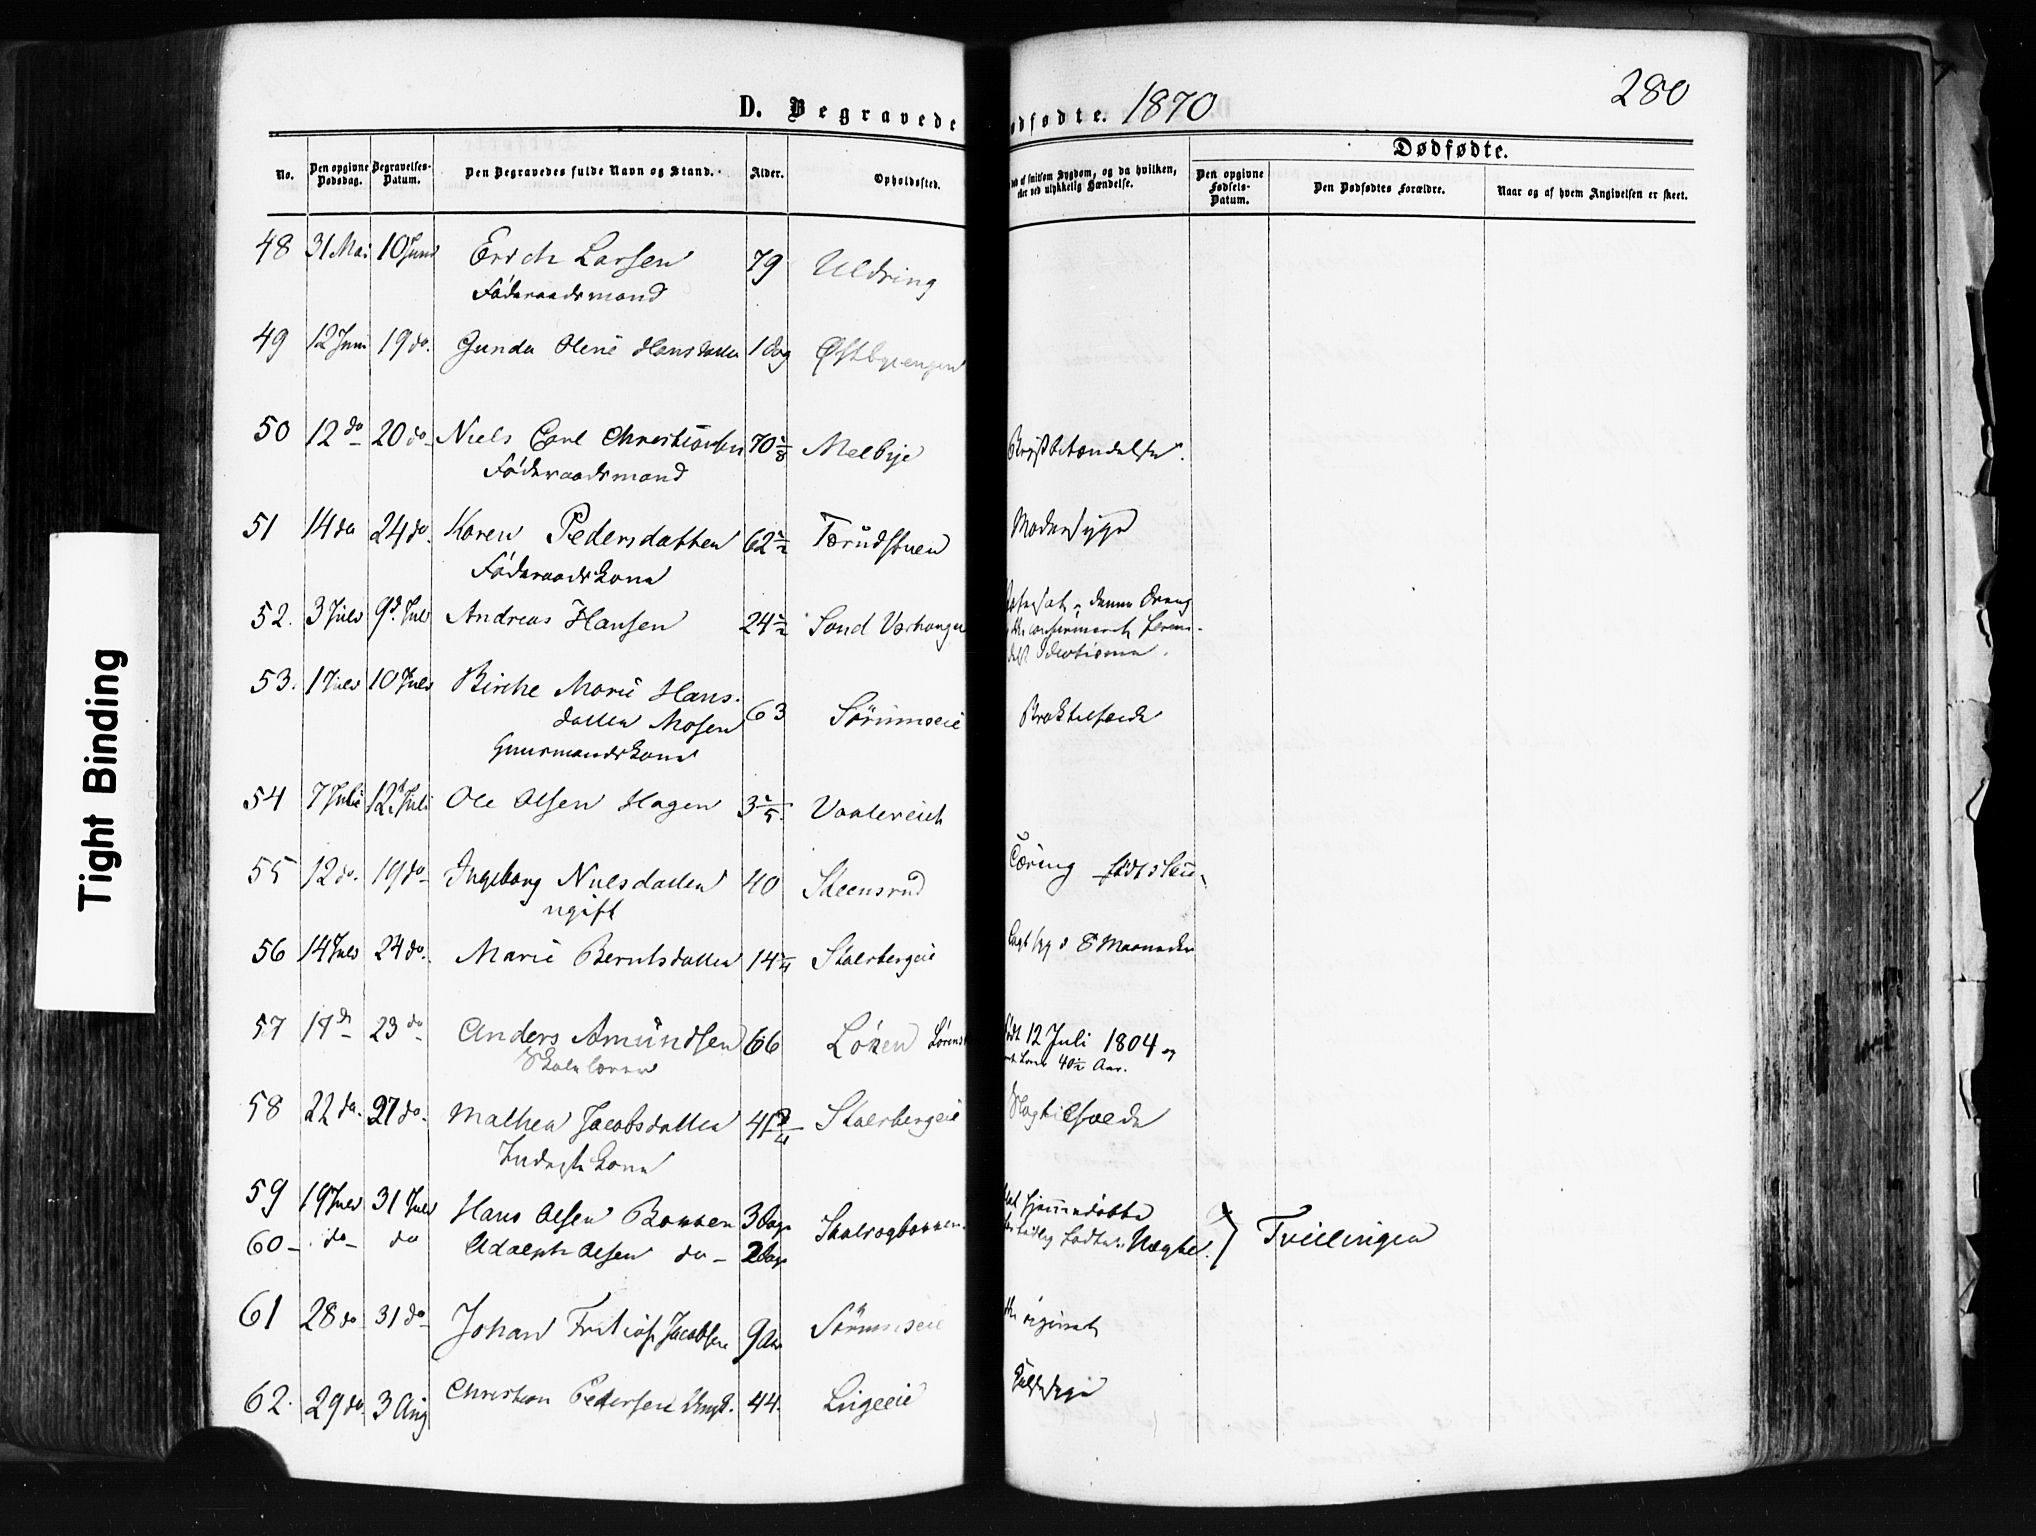 280
D. Begravede
ødfødte. 1870
Dødfødte.
No.
Den opgivne Dødsdag.
Begravelses-Datum.
Den Begravedes fulde Navn og Stand.
Alder.
Opholdssted.
af smitsom Sygdom, og da hvilken, eller ved ulykkelig Hændelse.
Den opgivne Fødsels-Datum.
Den Dødfødtes Forældre.
Naar og af hvem Angivelsen er skeet.
48 31 Mai 10 Juni Erich Larsen 79 Uldring
Föderaadsmand
49 12 Juni 19 do. Gunda Oline Hansdatter 1 dag Østbyengen
50 12 do 20 do Niels Carl Christiansen 70 Melbye Brystbetændelse.
Föderaadsmand
51 14 do 24 do. Karen Pedersdatter 62 ½ Tærudstuen Modersyge
Föderaadskone
52. 3 Juli 9d. Juli Andreas Hansen 24 ½ Sond Varhaugen
53. 1 Juli 10 Juli Birthe Marie Hans-
datter Mosen 63 Sörumseie Braktilfælde
Gaardmandskone
54 7 Juli 12 Juli Ole Olsen Hagen 3 1/5 Vaalereich
55 12 do. 19 do Ingeborg Nielsdatter 40 Steensrud Tæring
ugift
56 14 Juli 24 do. Marie Berntsdatter 14 ¼ Skaarbergeie lagt syg i 8 Maaneder
57 17 do 23 do Anders Amundsen 66 Löken født 12 Juli 1804 og
Skolelærer 40 ½ Aar.
58 22 do. 27 do. Mathea Jacobsdatter 41 ¾ Skaarbergeie Slagtilfælde
Inderstkone
59 19 Juli 31 Juli Hans Olsen Bakken 3 Dage Skalrogbakken. hjemmedöbte
60 do do Adolph Olsen do 2 Dage } Tvillinger
61 28 do 31 do Johan Fritiof Jacobsen 9 Aar Sörumseie
62. 29 do. 3 Aug Christian Pedersen Ungk. 44. Lingeeie
Tight Binding